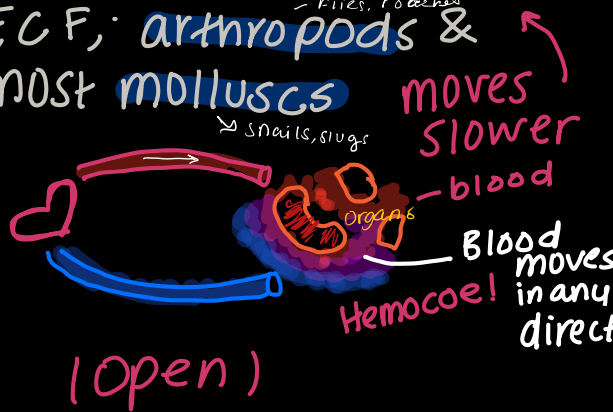 ECF; arthropods &
most molluscs
snails, slugs
moves
slower
blood
organs
Blood
moves
in any
direct
Hemocoe!
(open)